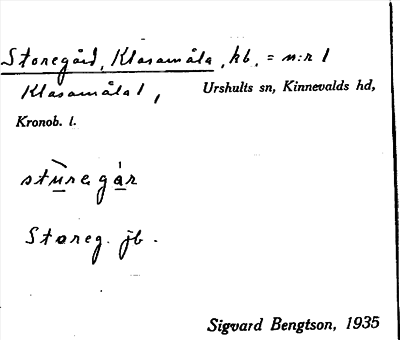 Storegård, Klasamåla, hb. = n:r 1
Klasamåla 1, Urshults sn, Kinnevalds hd,
Kronob. l.
stùregár
Storeg. jb.
Sigvard Bengtson, 1935